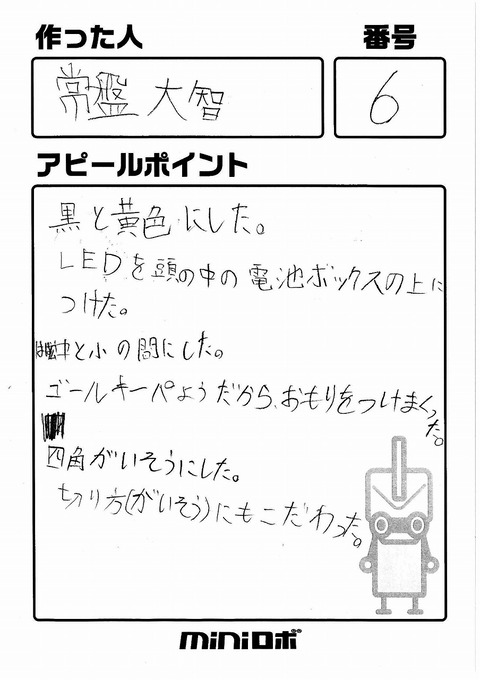 作った人
番号
常盤 大智
6
アピールポイント
黒と黄色にした。
LEDを頭の中の電池ボックスの上に
つけた。
中と小の間にした。
ゴールキーパようだから、おもりをつけまくっ
た。
四角がいそうにした。
切り方(がいそう)にもこだわった。
miniロボ